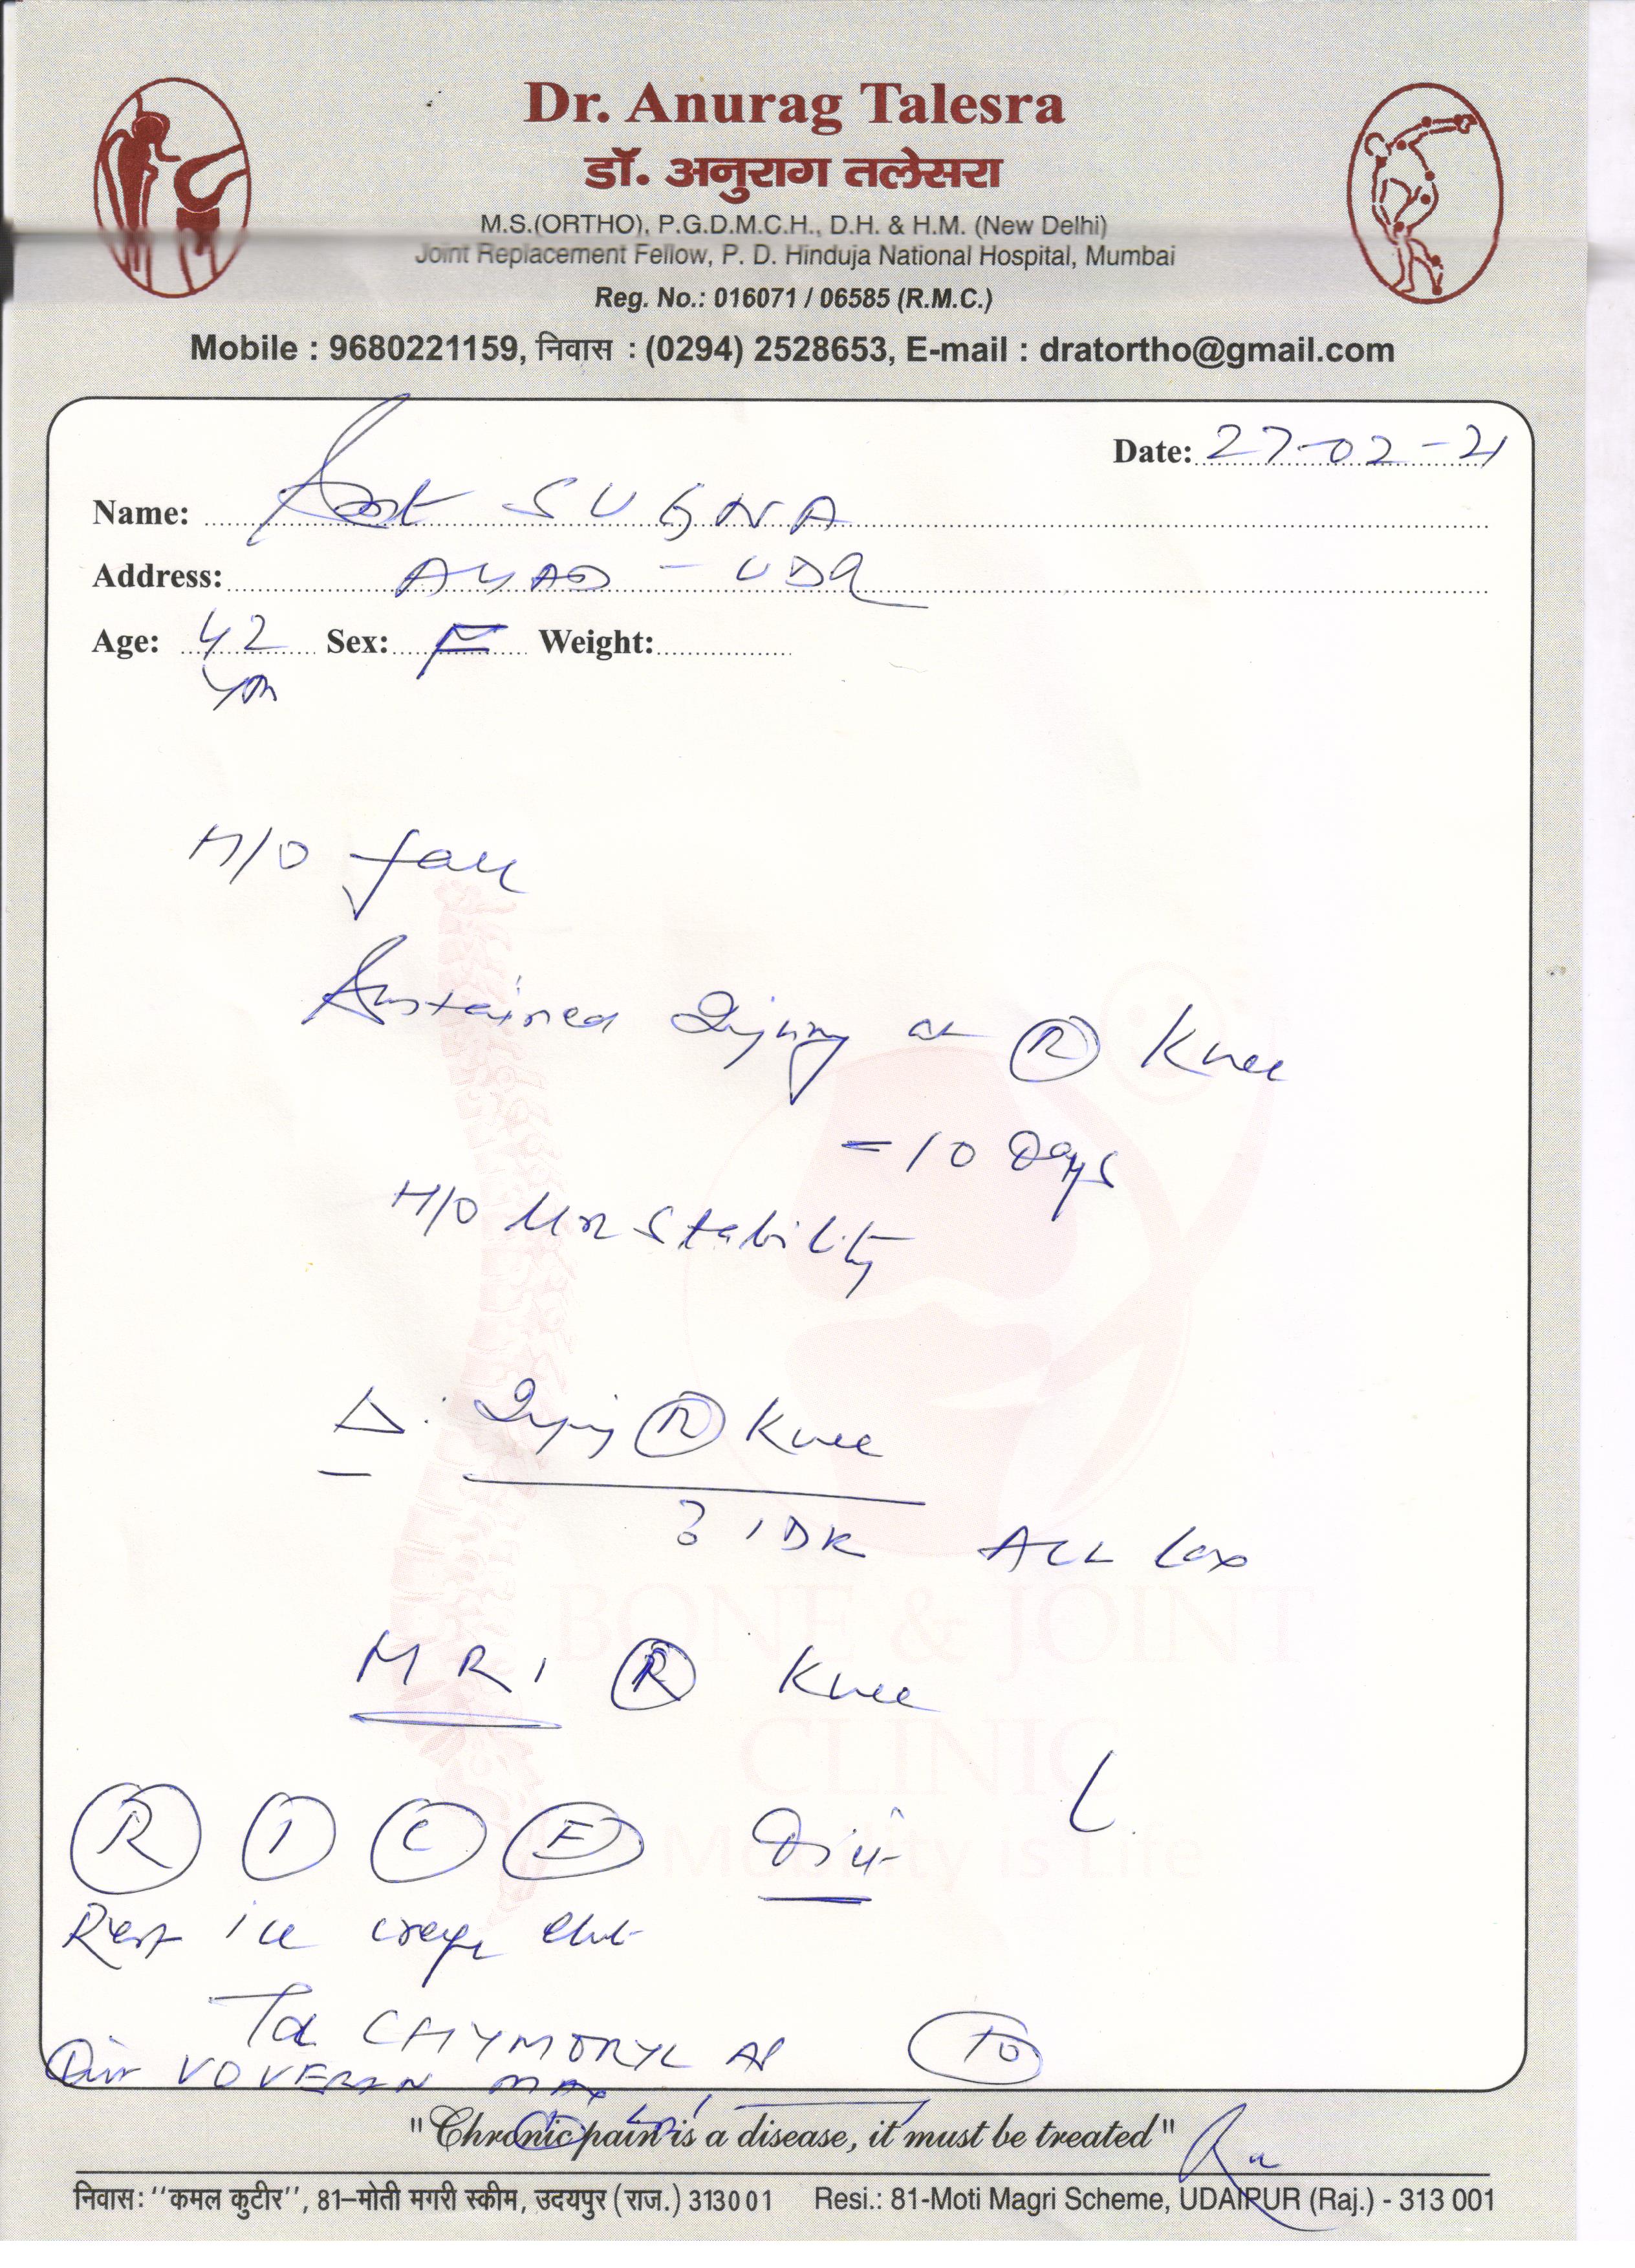 Dr. Anurag Talesra
डॉ. अनुराग तलेसरा
M.S.(ORTHO), P.G.D.M.C.H., D.H. & H.M. (New Delhi)
Joint Replacement Fellow, P. D. Hinduja National Hospital, Mumbai
Reg. No.: 016071 / 06585 (R.M.C.)
Mobile : 9680221159, निवास : (0294) 2528653, E-mail : dratortho@gmail.com
Date: 27-02-21
Name: SUGNA
Address: AYAD - UDR
Age: 42 Sex: F Weight:
H/O fall
Sustained Injury at R Knee
= 10 Days
H/O Unstability
Δ: Injury R Knee
? IDK ACL lax
MRI R Knee
BONE & JOINT
CLINIC
Mobility is Life
R I C E
Rest ice
CHYMORYL AP 10
VOVERAN MAX
"Chronic pain is a disease, it must be treated"
निवास: ''कमल कुटीर'', 81–मोती मगरी स्कीम, उदयपुर (राज.) 313001 Resi.: 81-Moti Magri Scheme, UDAIPUR (Raj.) - 313 001